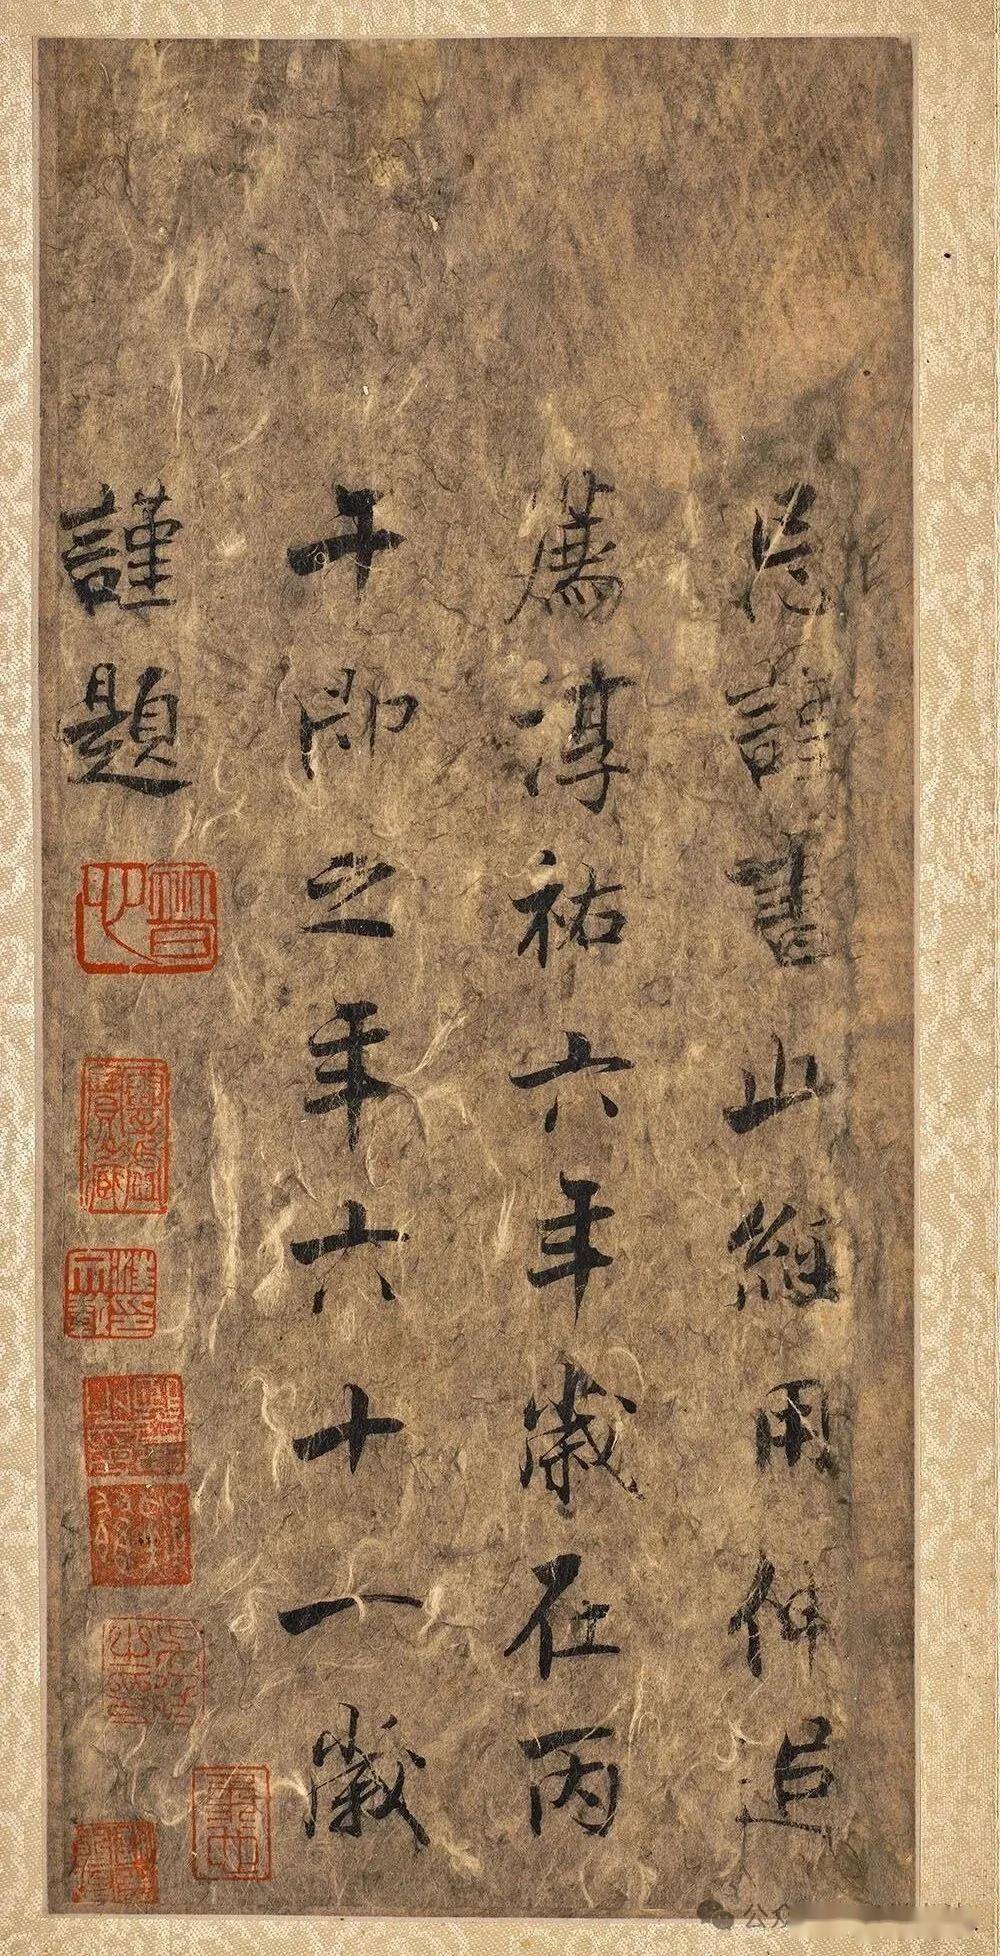 忌謹書此經用伸追
薦淳祐六年歲在丙
午即之年六十一歲
謹題
公众